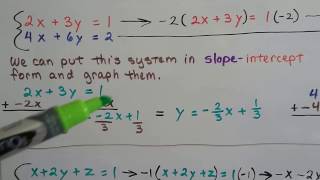 2x + 3y = 1 → -2(2x + 3y) = 1(-2)
4x + 6y = 2
We can put this system in slope-intercept
form and graph them.
2x + 3y = 1 4
+ -2x + -4
-2x + 1 = y = -2/3 x + 1/3
3 3
x + 2y + z = 1 → -1(x + 2y + z) = 1(-1) → -x - 2y